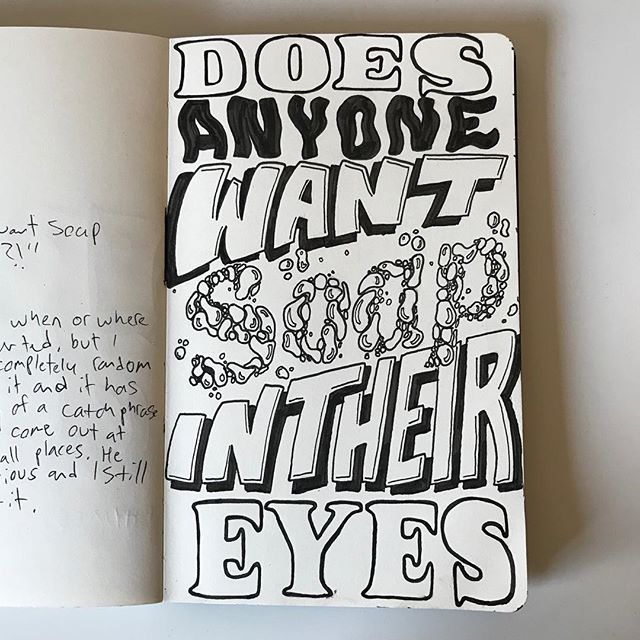 want Soap
?!"
when or where
but I
completely random
it and it has
of a catch phrase
come out at
all places. He
and I still
it.
DOES
ANYONE
WANT
Soap
IN THEIR
EYES